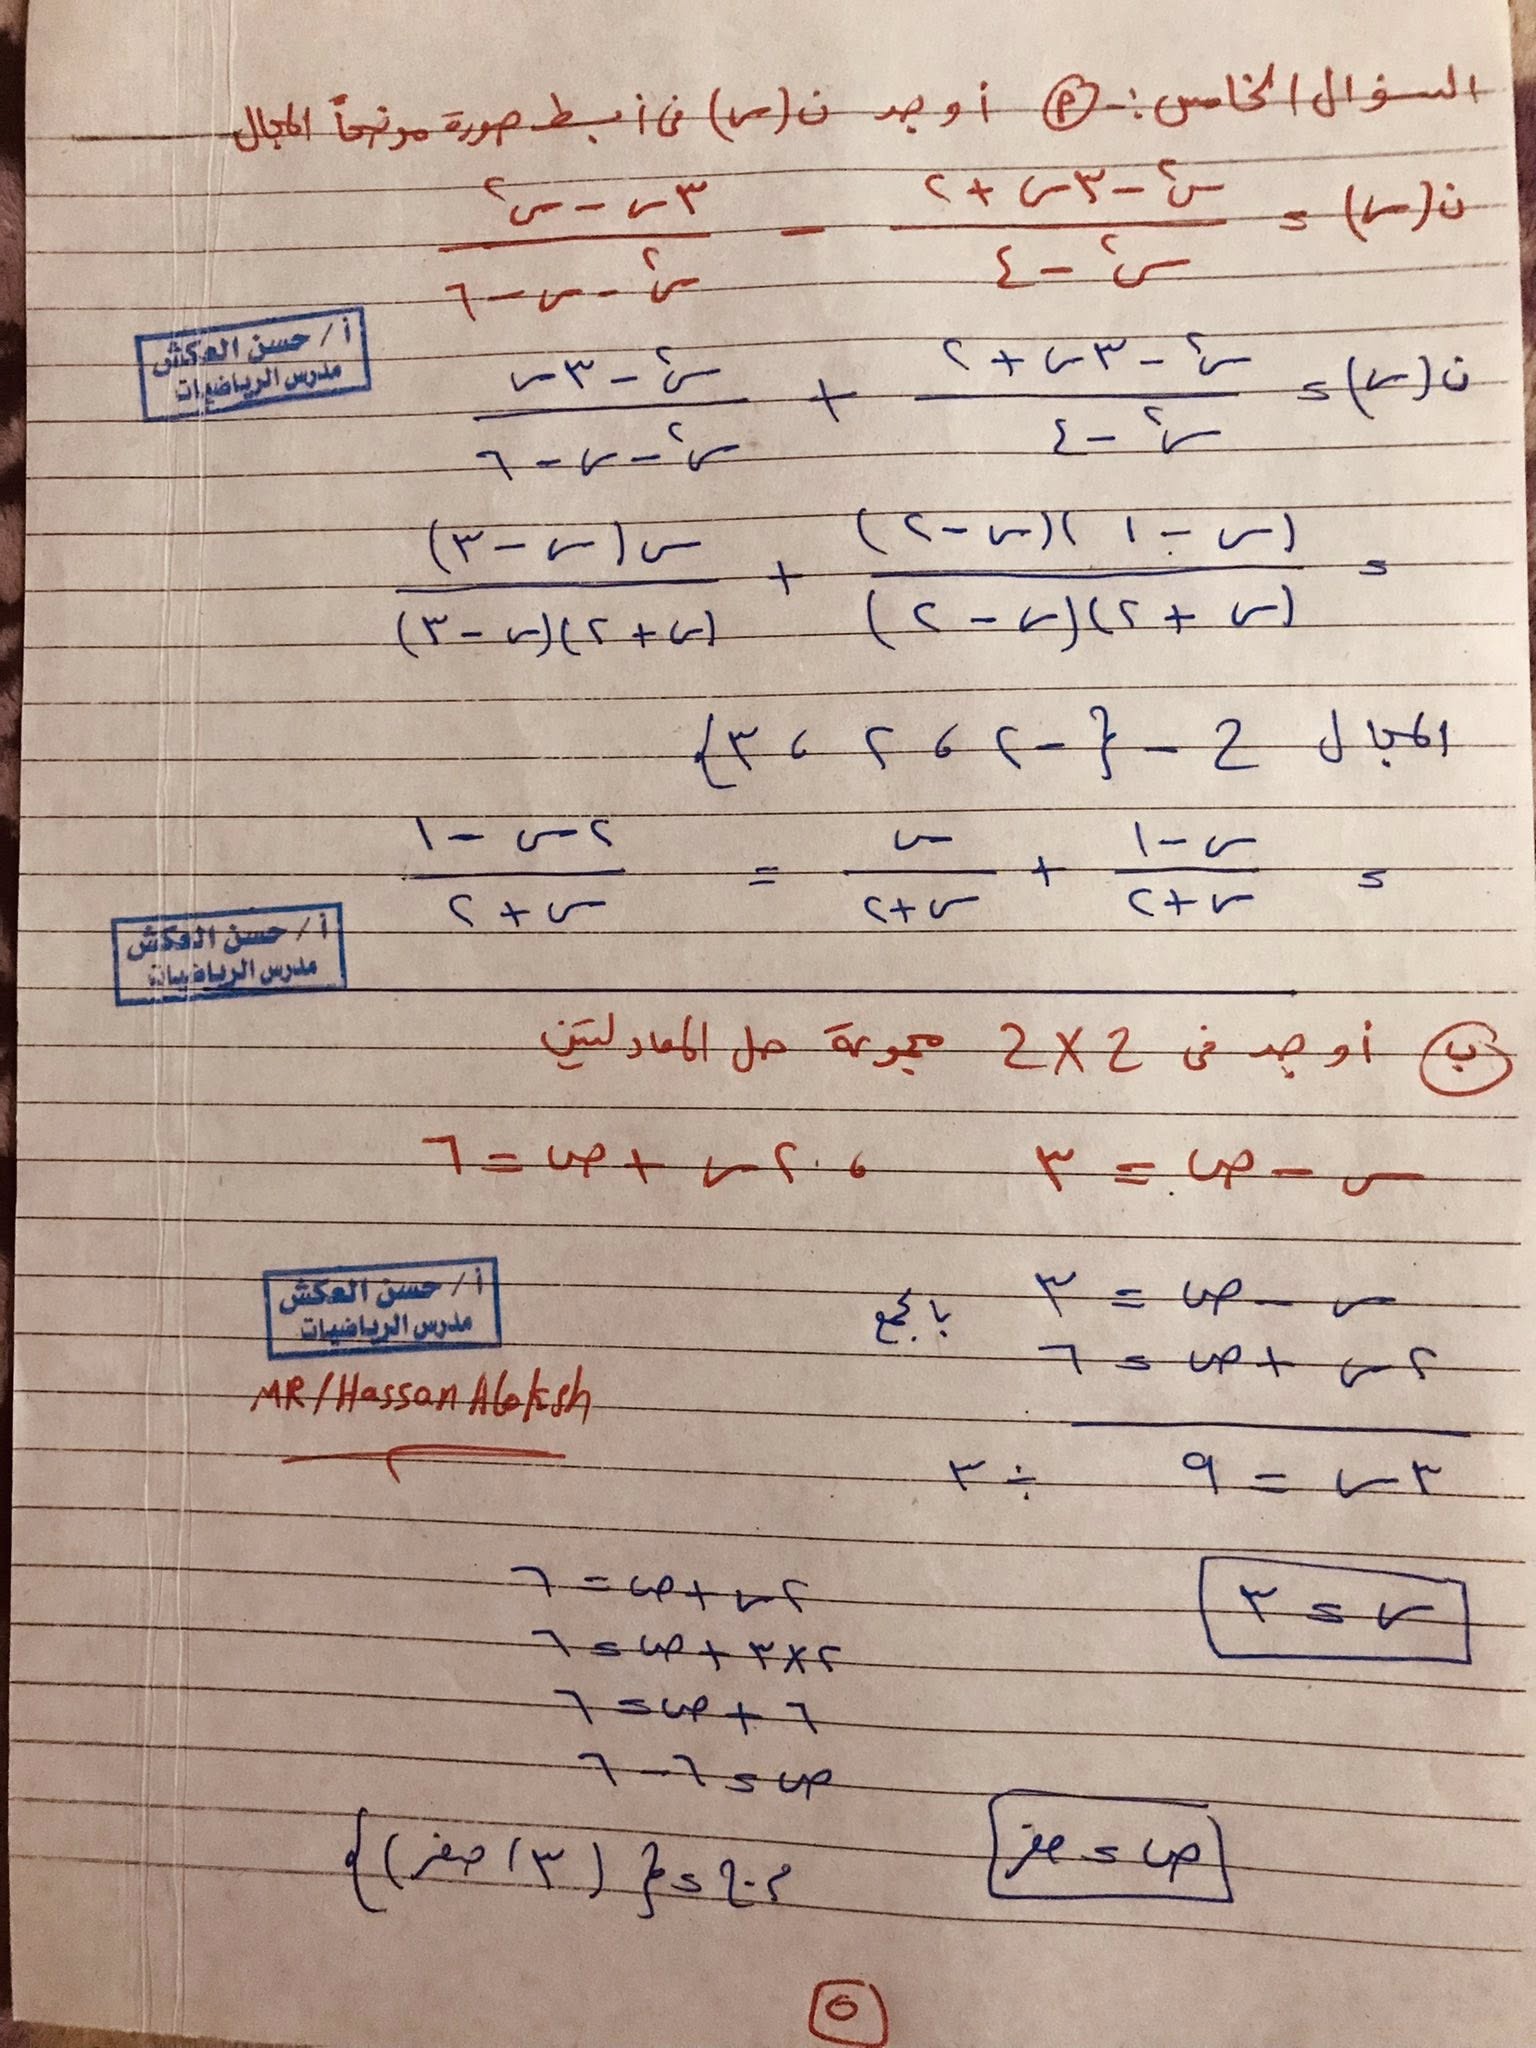 السؤال الخامس :- (أ) أوجد ن(س) فى أبسط صورة موضحاً المجال
ن(س) = (س² - ٣س + ٢)/(س² - ٤) - (٣س - س²)/(س² - س - ٦)
ن(س) = (س² - ٣س + ٢)/(س² - ٤) + (س² - ٣س)/(س² - س - ٦)
أ/ حسن العكش
مدرس الرياضيات
= (س - ١)(س - ٢)/(س + ٢)(س - ٢) + س(س - ٣)/(س + ٢)(س - ٣)
المجال ح - {-٢ ، ٢ ، ٣}
= (س - ١)/(س + ٢) + س/(س + ٢) = (٢س - ١)/(س + ٢)
أ/ حسن العكش
مدرس الرياضيات
(ب) أوجد فى ح×ح مجموعة حل المعادلتين
س - ص = ٣ ، ٢س + ص = ٦
س - ص = ٣ بالجمع
٢س + ص = ٦
أ/ حسن العكش
مدرس الرياضيات
MR/Hassan Alaksh
٣س = ٩ ÷ ٣
س = ٣
٢س + ص = ٦
٢×٣ + ص = ٦
٦ + ص = ٦
ص = ٦ - ٦
ص = صفر
م.ح = {(٣، صفر)}
٥